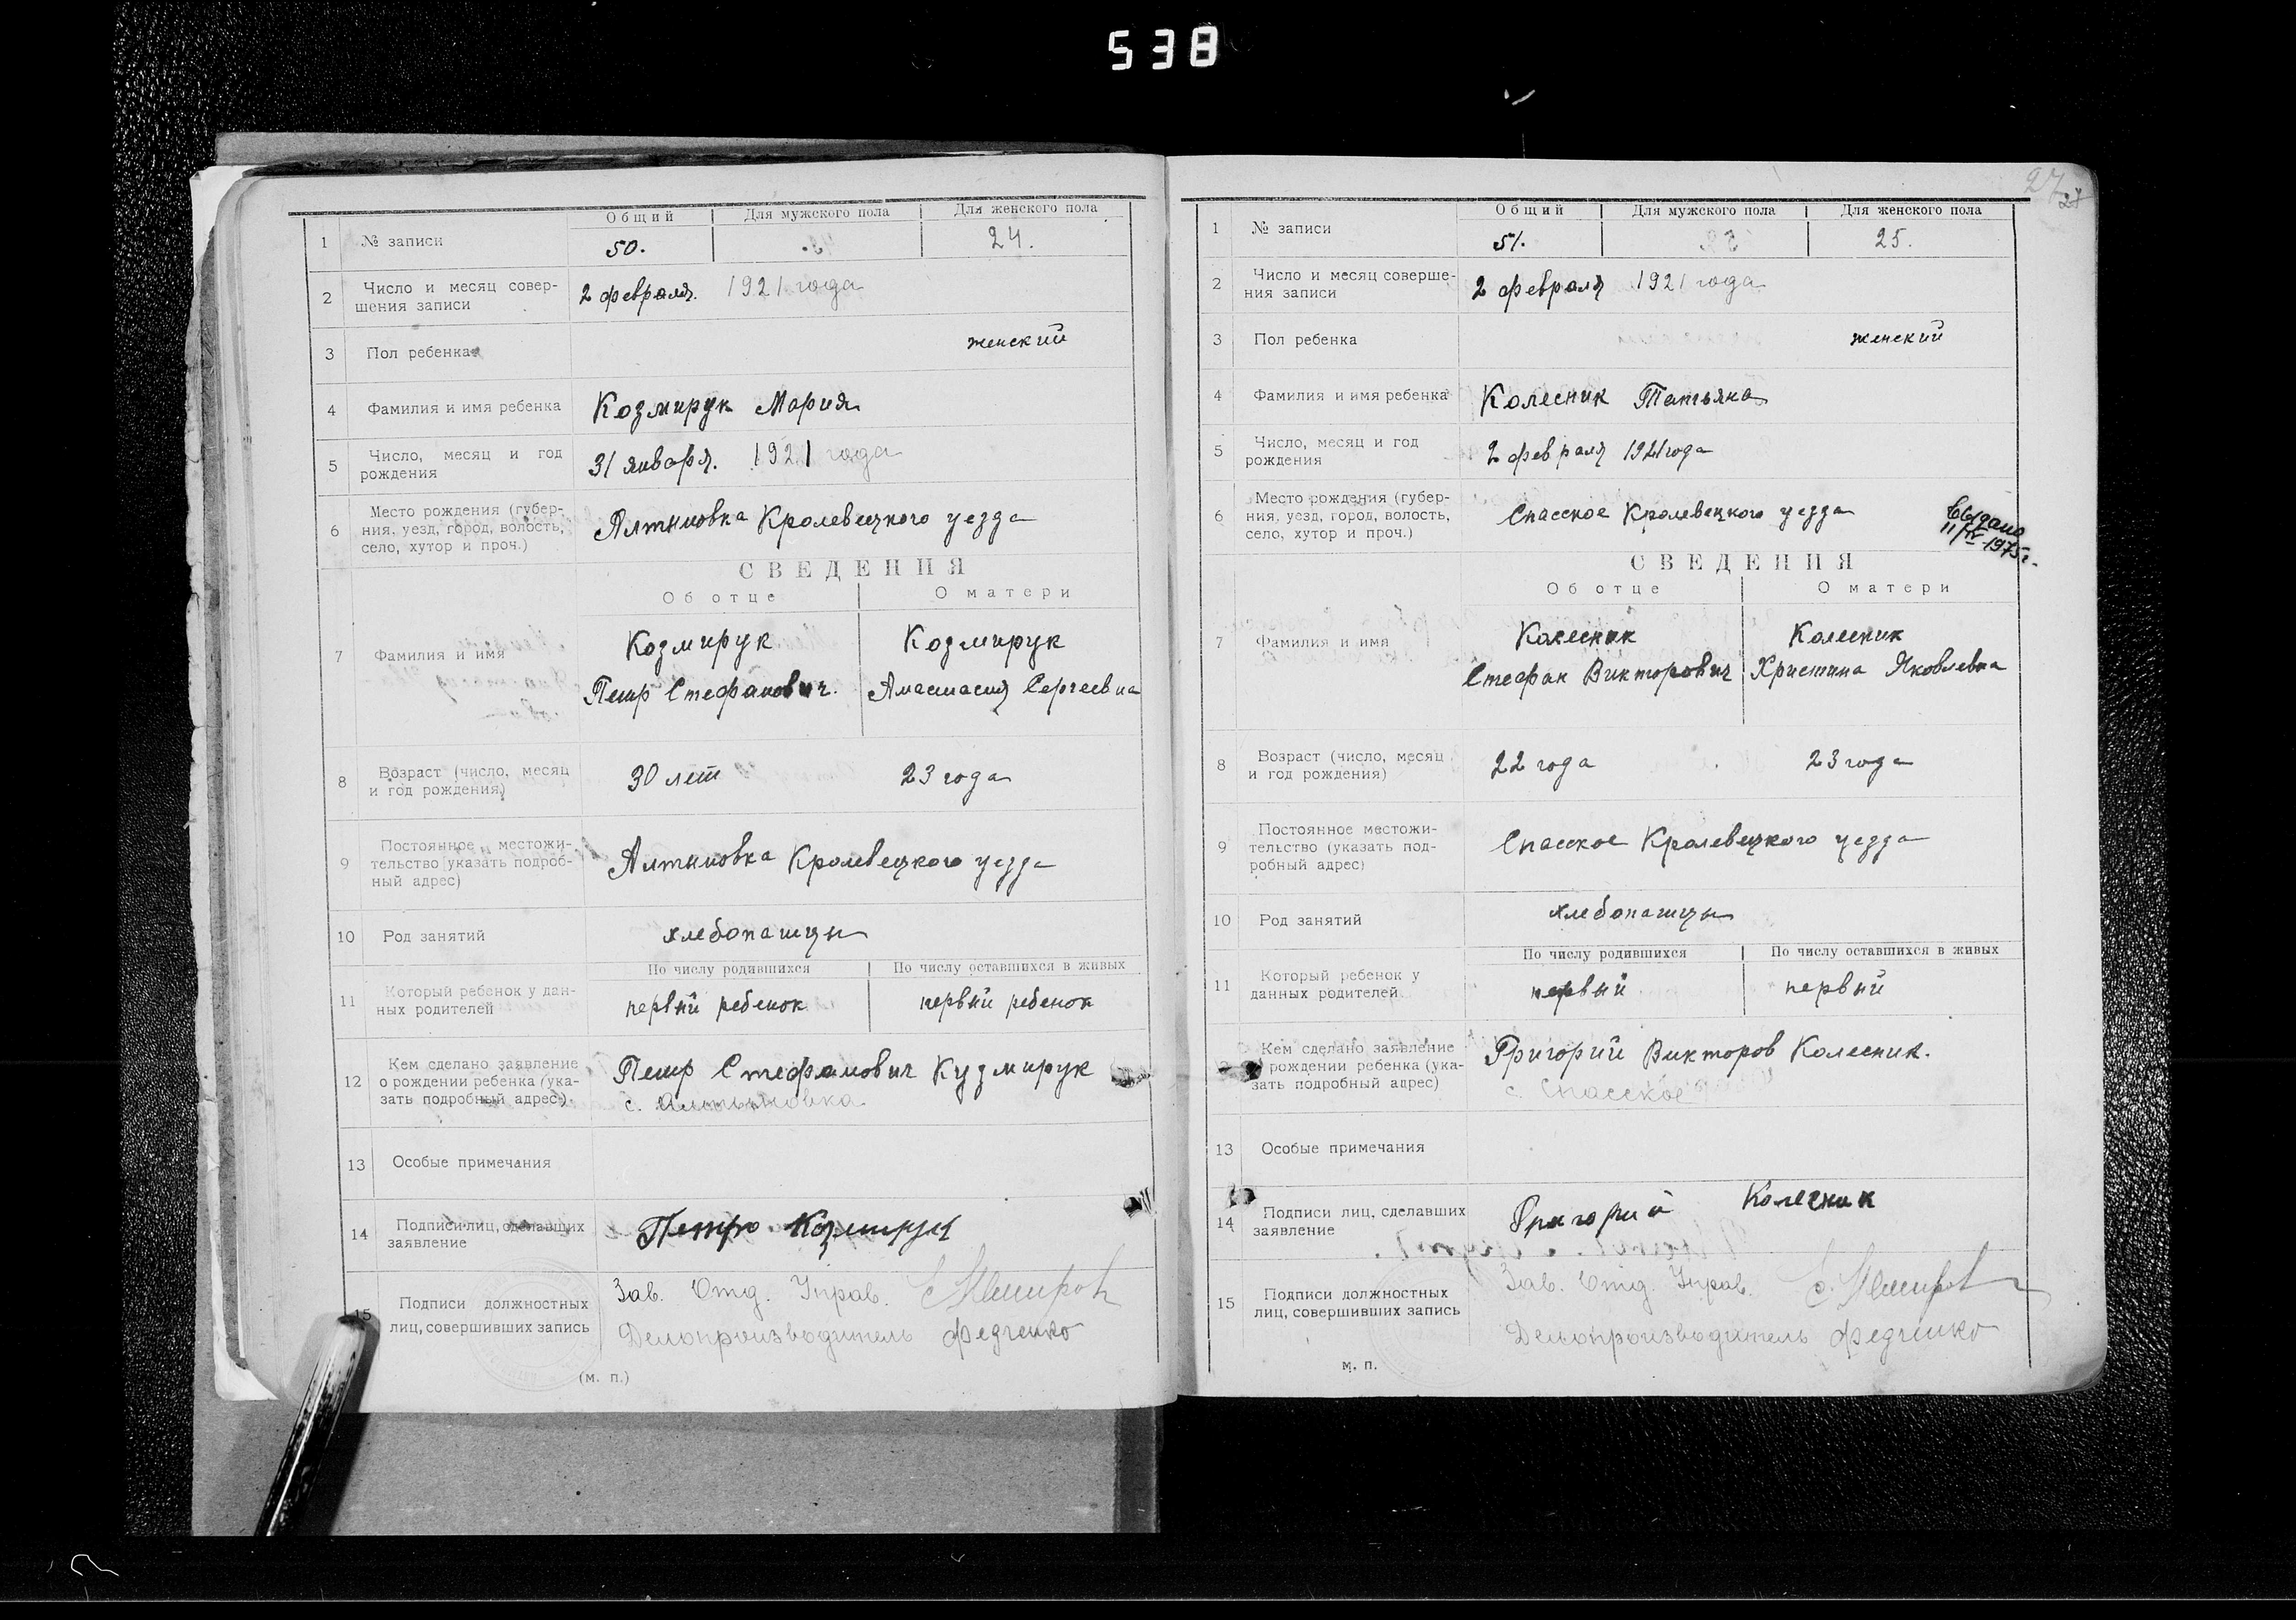 538
27
27
Общий Для мужского пола Для женского пола
1 № записи 50. 24.
2 Число и месяц совер-
шения записи 2 февраля. 1921 года
3 Пол ребенка женский
4 Фамилия и имя ребенка Козмирук Мария
5 Число, месяц и год
рождения 31 января. 1921 года
6 Место рождения (губер-
ния, уезд, город, волость,
село, хутор и проч.) Алтыновка Кролевецкого уезда
СВЕДЕНИЯ
Об отце О матери
7 Фамилия и имя
Козмирук Козмирук
Петр Стефанович. Анастасия Сергеевна
8 Возраст (число, месяц
и год рождения) 30 лет 23 года
9 Постоянное местожи-
тельство (указать подроб-
ный адрес) Алтыновка Кролевецкого уезда
10 Род занятий хлебопашцы
По числу родившихся По числу оставшихся в живых
11 Который ребенок у дан-
ных родителей первый ребенок первый ребенок
12 Кем сделано заявление
о рождении ребенка (ука-
зать подробный адрес) Петр Стефанович Кузмирук
с. Алтыновка
13 Особые примечания
14 Подписи лиц, сделавших
заявление Петро Козмирук
15 Подписи должностных
лиц, совершивших запись Зав. Отд. Управ.
Делопроизводитель Федченко
(м. п.)
Общий Для мужского пола Для женского пола
1 № записи 51. 25.
2 Число и месяц соверше-
ния записи 2 февраля 1921 года
3 Пол ребенка женский
4 Фамилия и имя ребенка Колесник Татьяна
5 Число, месяц и год
рождения 2 февраля 1921 года
6 Место рождения (губер-
ния, уезд, город, волость,
село, хутор и проч.) Спасское Кролевецкого уезда
Выдано
11/IV-1975г.
СВЕДЕНИЯ
Об отце О матери
7 Фамилия и имя
Колесник Колесник
Стефан Викторович Христина Яковлевна
8 Возраст (число, месяц
и год рождения) 22 года 23 года
9 Постоянное местожи-
тельство (указать под-
робный адрес) Спасское Кролевецкого уезда
10 Род занятий хлебопашцы
По числу родившихся По числу оставшихся в живых
11 Который ребенок у
данных родителей первый первый
Кем сделано заявление
рождении ребенка (ука-
зать подробный адрес) Григорий Викторов Колесник.
с. Спасское
13 Особые примечания
14 Подписи лиц, сделавших
заявление Григорий Колесник
15 Подписи должностных
лиц, совершивших запись Зав. Отд. Управ.
Делопроизводитель Федченко
м. п.